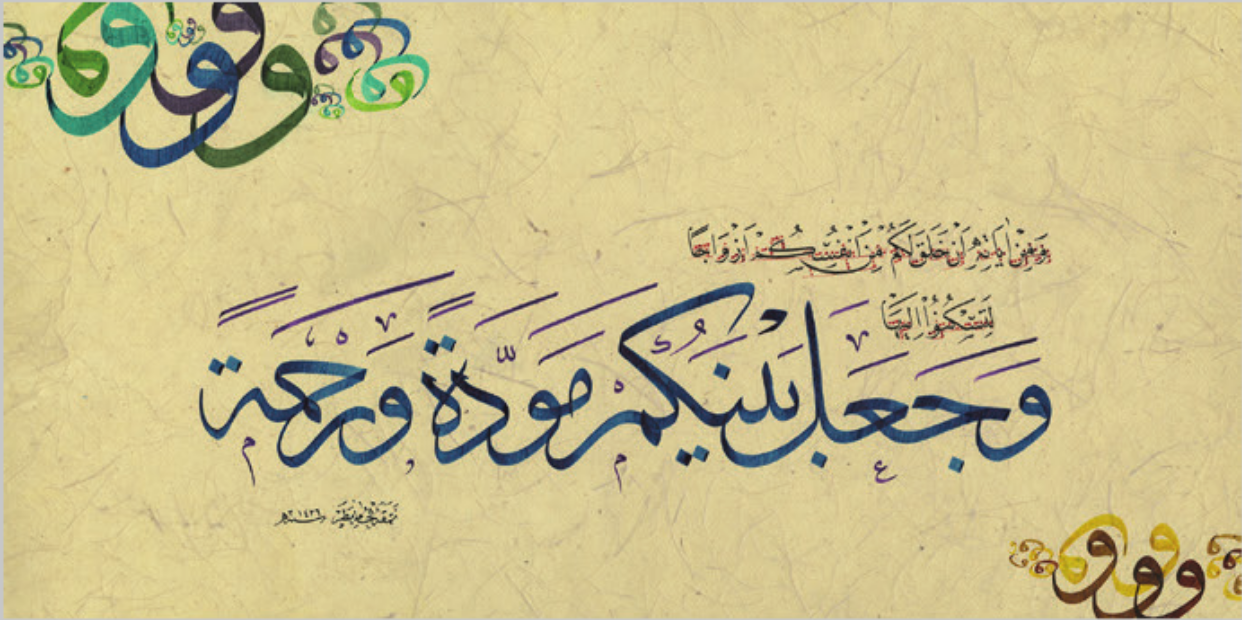 وَمِنْ آيَاتِهِ أَنْ خَلَقَ لَكُمْ مِنْ أَنْفُسِكُمْ أَزْوَاجًا
لِتَسْكُنُوا إِلَيْهَا
وَجَعَلَ بَيْنَكُمْ مَوَدَّةً وَرَحْمَةً